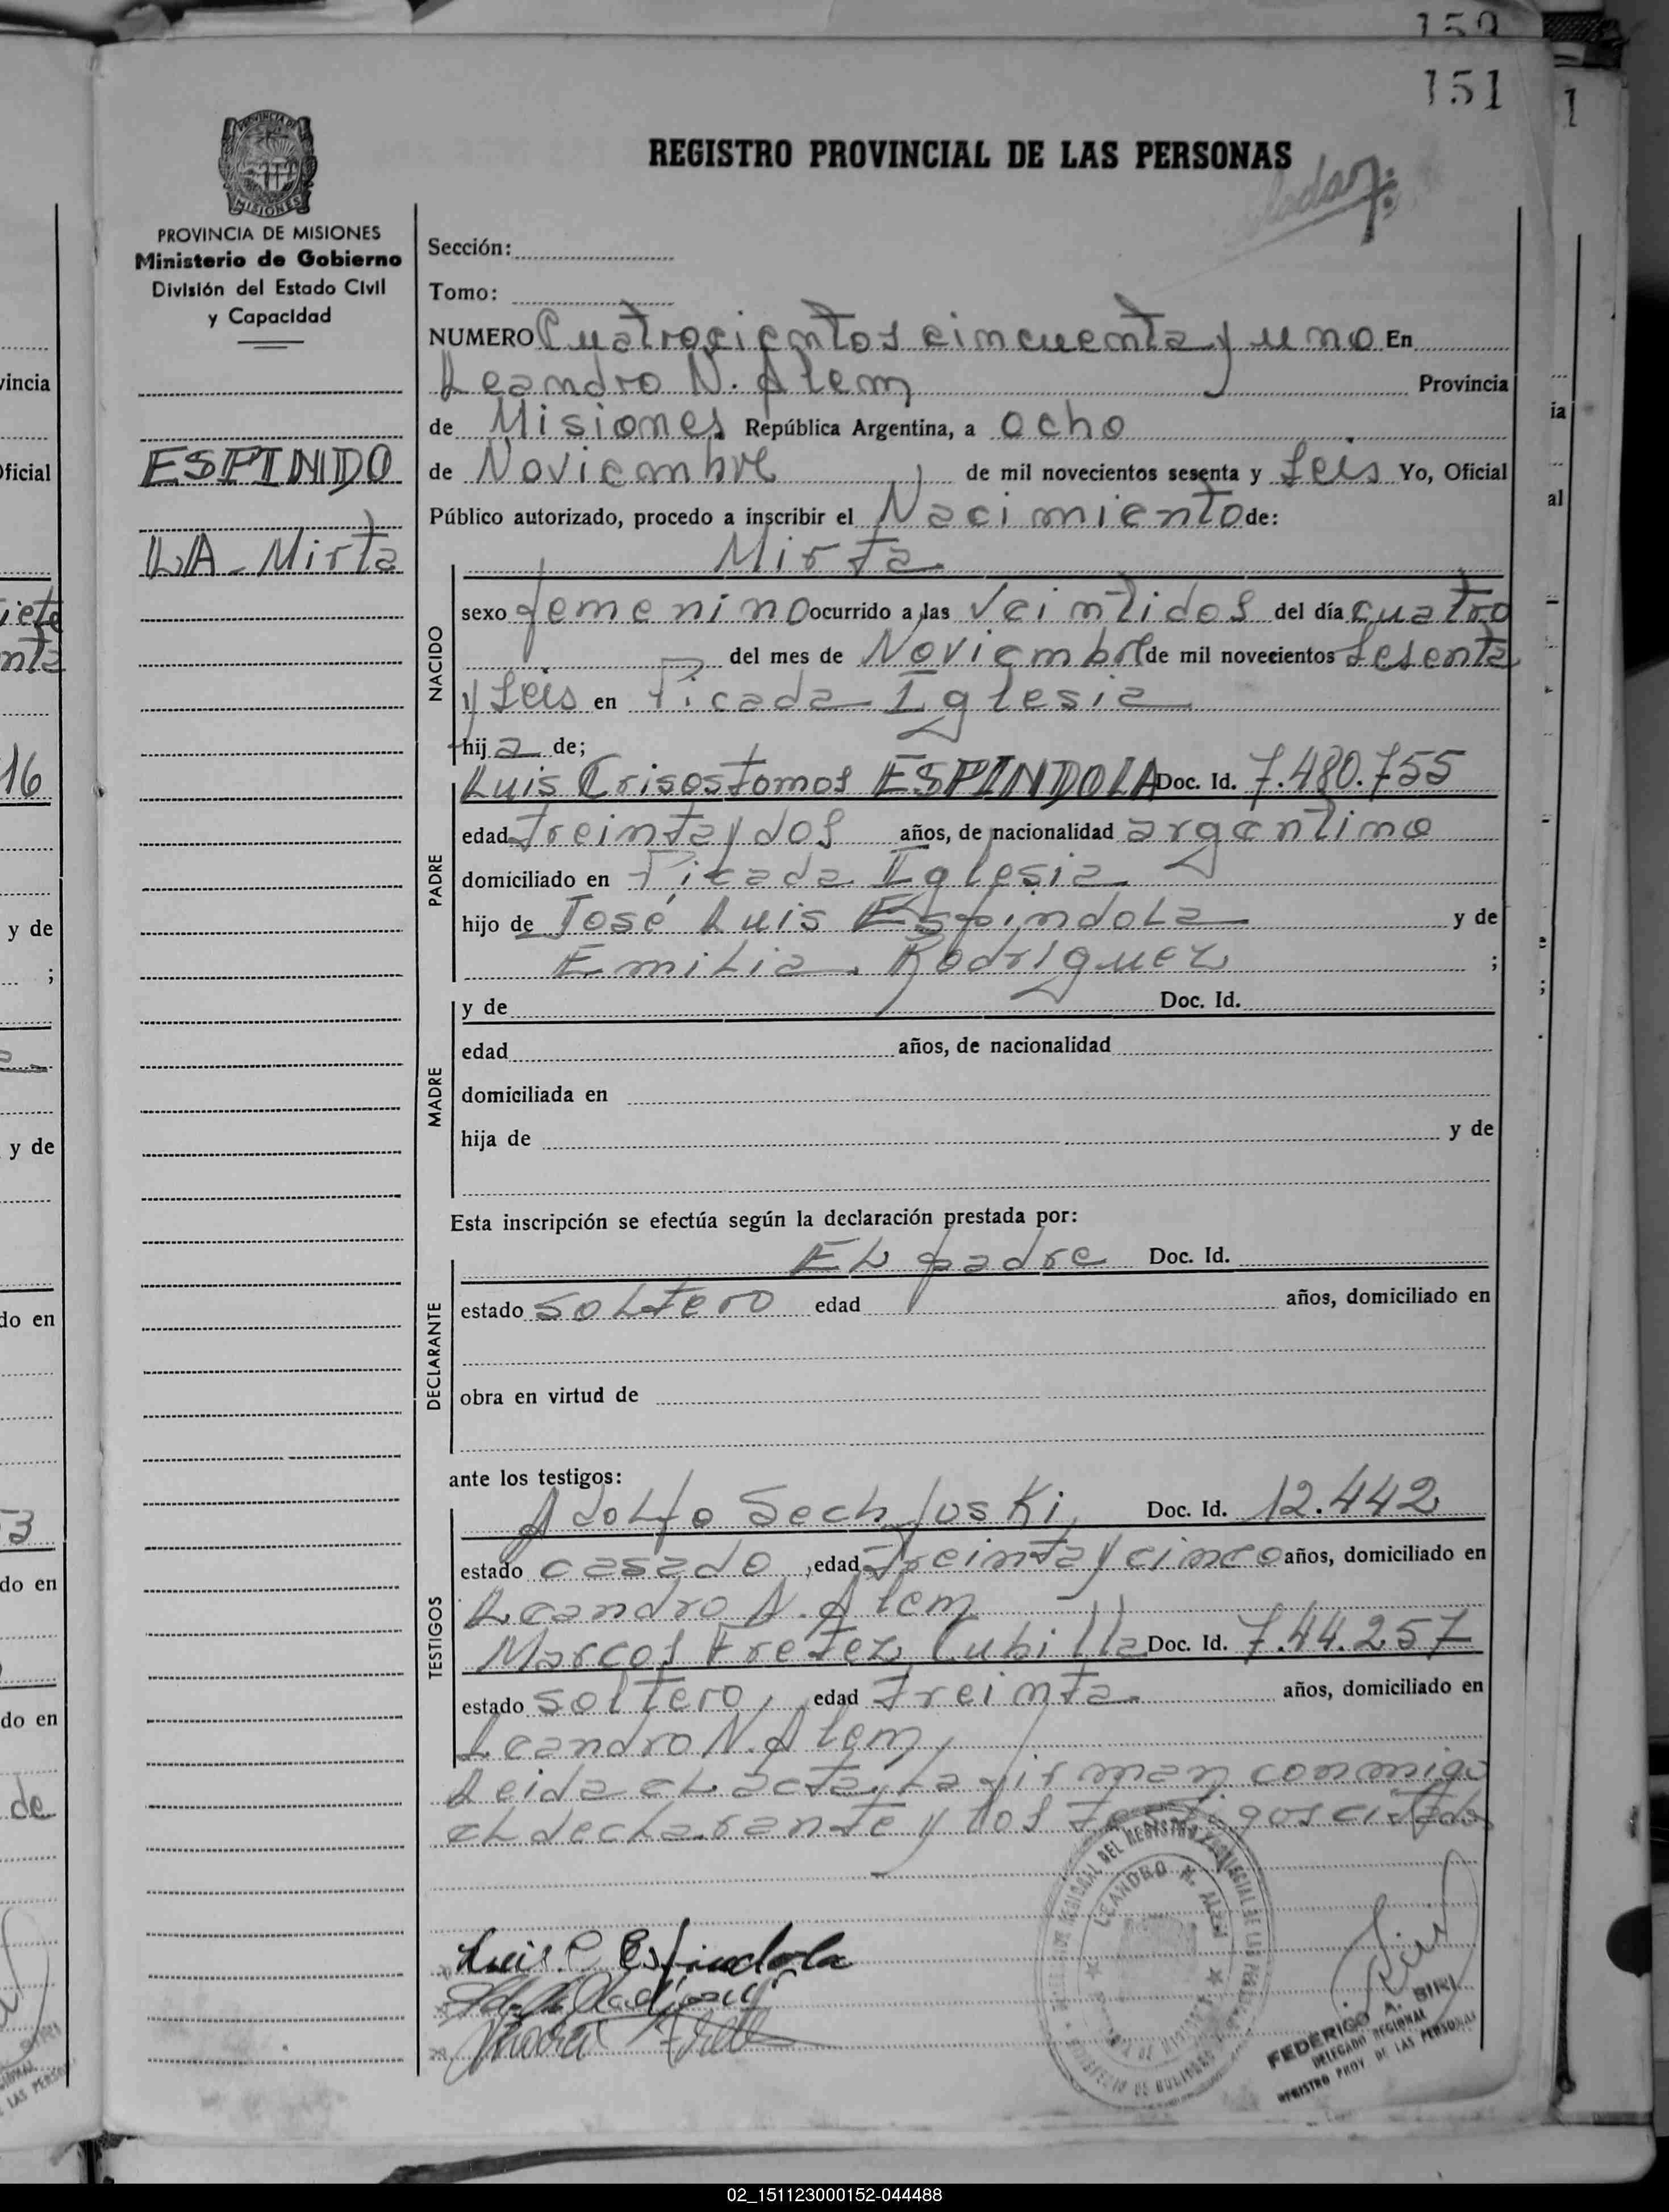 159
151
1
REGISTRO PROVINCIAL DE LAS PERSONAS
MISIONES
PROVINCIA DE MISIONES
Ministerio de Gobierno
División del Estado Civil
y Capacidad
ESPINDO
LA - Mirta
Sección:
Tomo:
NUMERO Cuatrocientos cincuenta y uno En
Leandro N. Alem Provincia
de Misiones República Argentina, a ocho
de Noviembre de mil novecientos sesenta y seis Yo, Oficial
Público autorizado, procedo a inscribir el Nacimiento de:
Mirta
NACIDO
sexo femenino ocurrido a las veintidos del día cuatro
del mes de Noviembre de mil novecientos sesenta
y seis en Picada Iglesia
hija de;
PADRE
Luis Crisostomos ESPINDOLA Doc. Id. 7.480.755
edad treinta y dos años, de nacionalidad argentino
domiciliado en Picada Iglesia
hijo de José Luis Espindola y de
Emilia Rodriguez ;
MADRE
y de Doc. Id.
edad años, de nacionalidad
domiciliada en
hija de y de
Esta inscripción se efectúa según la declaración prestada por:
DECLARANTE
El padre Doc. Id.
estado soltero edad años, domiciliado en
obra en virtud de
ante los testigos:
TESTIGOS
Adolfo Doc. Id. 12.442
estado casado, edad treinta y cinco años, domiciliado en
Leandro N. Alem
Marcos Fretez Cubilla Doc. Id. 7.44.257
estado soltero, edad treinta años, domiciliado en
Leandro N. Alem
Leida el acta, la firman conmigo
el declarante y los testigos citados
Luis C Espindola
LEANDRO N. ALEM
FEDERICO A. SIRI
DELEGADO REGIONAL
REGISTRO PROV. DE LAS PERSONAS
vincia
Oficial
16
y de
;
y de
do en
3
do en
do en
de
ia
al
02_151123000152-044488